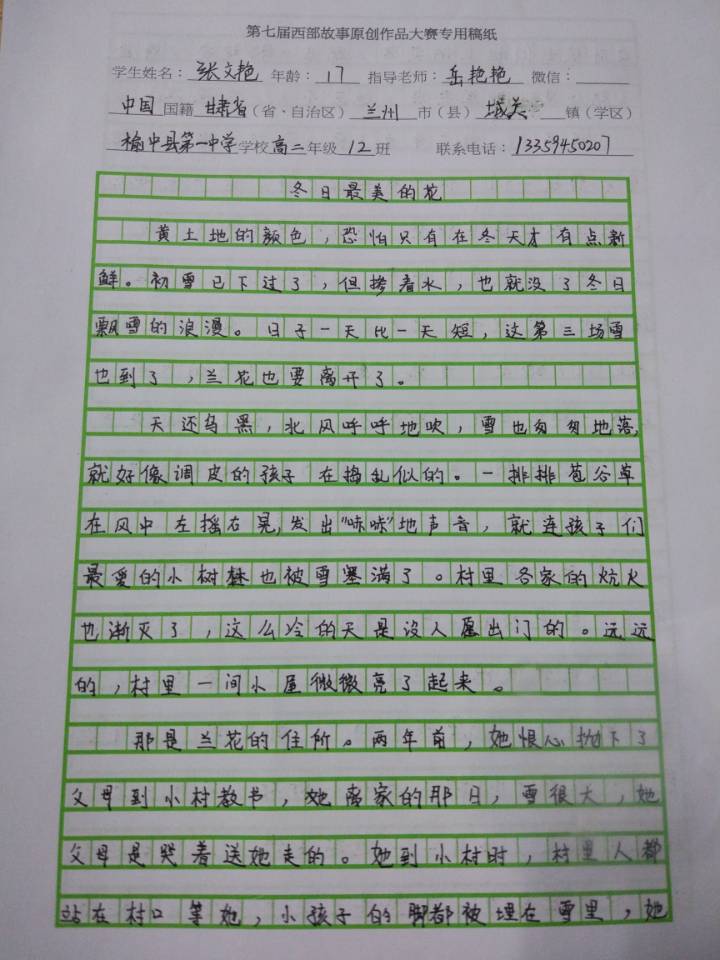 第七届西部故事原创作品大赛专用稿纸
学生姓名：张文艳 年龄：17 指导老师：岳艳艳 微信：
中国 国籍 甘肃省（省、自治区） 兰州 市（县） 城关 镇（学区）
榆中县第一中学 学校 高二 年级 12 班 联系电话：13359450207
冬日最美的花
黄土地的颜色，恐怕只有在冬天才有点新
鲜。初雪已下过了，但掺着水，也就没了冬日
飘雪的浪漫。日子一天比一天短，这第三场雪
也到了，兰花也要离开了。
天还乌黑，北风呼呼地吹，雪也匆匆地落，
就好像调皮的孩子在捣乱似的。一排排苞谷草
在风中左摇右晃，发出“咔咔”地声音，就连孩子们
最爱的小树林也被雪塞满了。村里各家的炕火
也渐灭了，这么冷的天是没人愿出门的。远远
的，村里一间小屋微微亮了起来。
那是兰花的住所。两年前，她恨心抛下了
父母到小村教书，她离家的那日，雪很大，她
父母是哭着送她走的。她到小村时，村里人都
站在村口等她，小孩子的脚都被埋在雪里，她